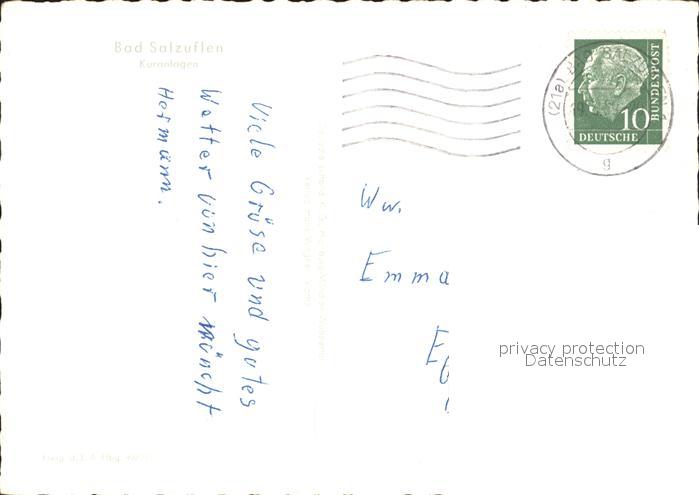 Bad Salzuflen
Kuranlagen
Viele Grüse und gutes
Wetter von hier wünscht
Hermann.
Ww.
Emma
E
privacy protection
Datenschutz
10
DEUTSCHE
BUNDESPOST
(21a) BAD
g